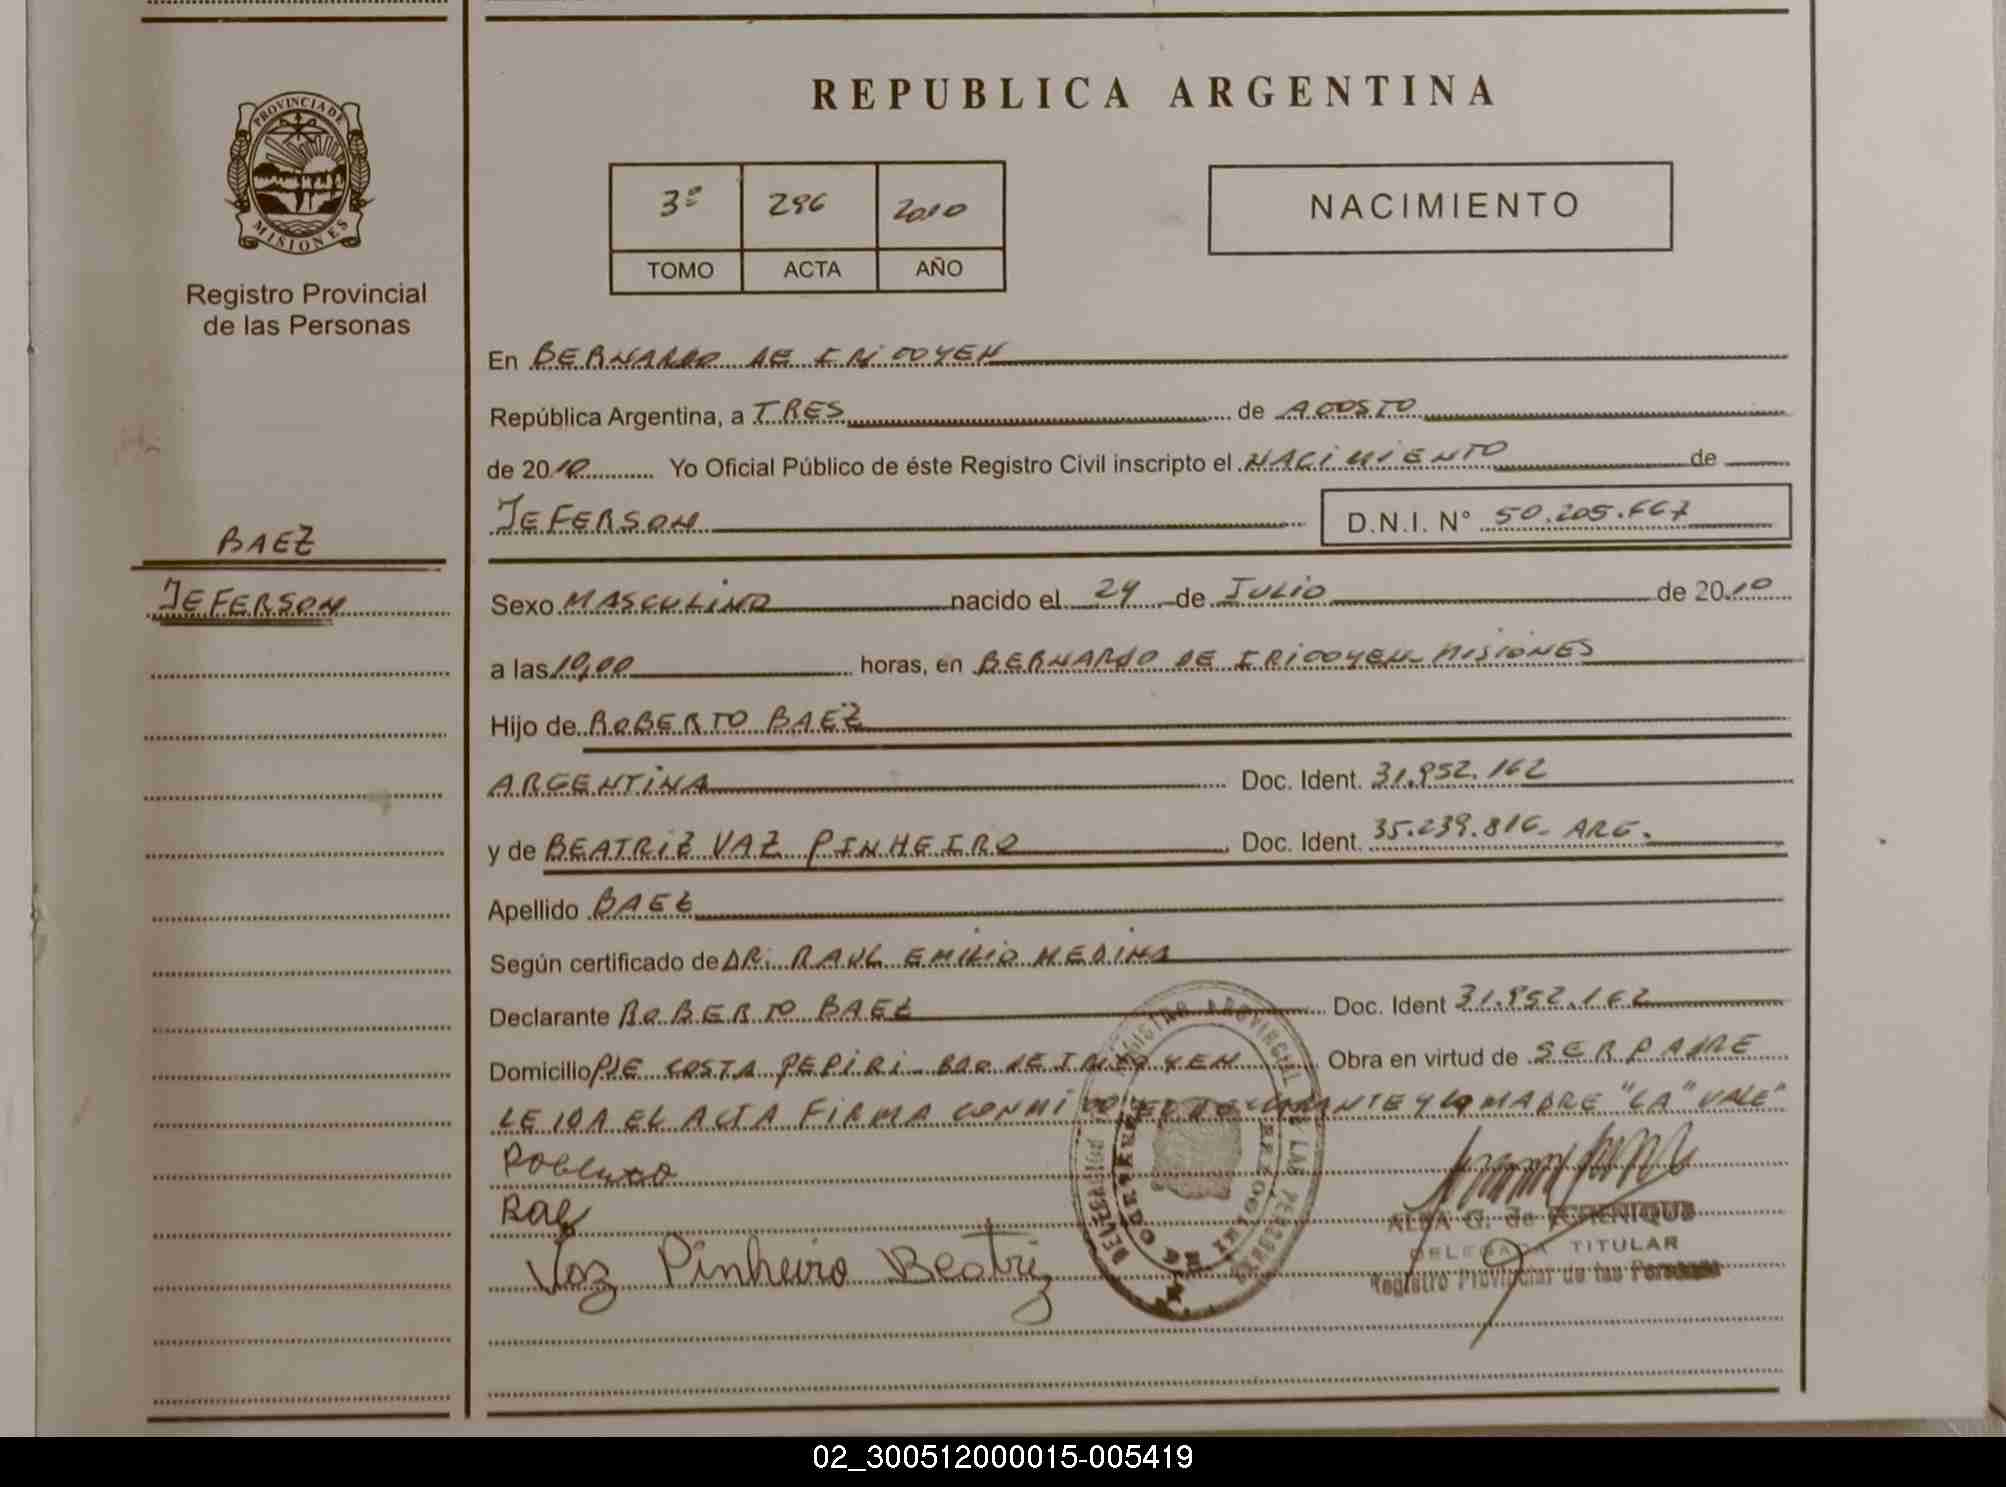 REPUBLICA ARGENTINA
PROVINCIA DE
MISIONES
Registro Provincial
de las Personas
3º 296 2010
TOMO ACTA AÑO
NACIMIENTO
En BERNARDO DE IRIGOYEN
República Argentina, a TRES de AGOSTO
de 2010 Yo Oficial Público de éste Registro Civil inscripto el NACIMIENTO de
JEFERSON D.N.I. Nº 50.205.667
BAEZ
JEFERSON
Sexo MASCULINO nacido el 24 de JULIO de 2010
a las 10,00 horas, en BERNARDO DE IRIGOYEN - MISIONES
Hijo de ROBERTO BAEZ
ARGENTINA Doc. Ident. 31.952.162
y de BEATRIZ VAZ PINHEIRO Doc. Ident. 35.239.816- ARG.
Apellido BAEZ
Según certificado de DR. RAUL EMILIO MEDINA
Declarante ROBERTO BAEZ Doc. Ident 31.952.162
Domicilio PJE COSTA PEPIRI - BDO DE IRIGOYEN Obra en virtud de SER PADRE
LEIDA EL ACTA FIRMA CONMIGO EL DECLARANTE Y LA MADRE "LA" VALE"
Roberto
Bae
Vaz Pinheiro Beatriz
ALBA G. de
DELEGADA TITULAR
Registro Provincial de las Personas
02_300512000015-005419